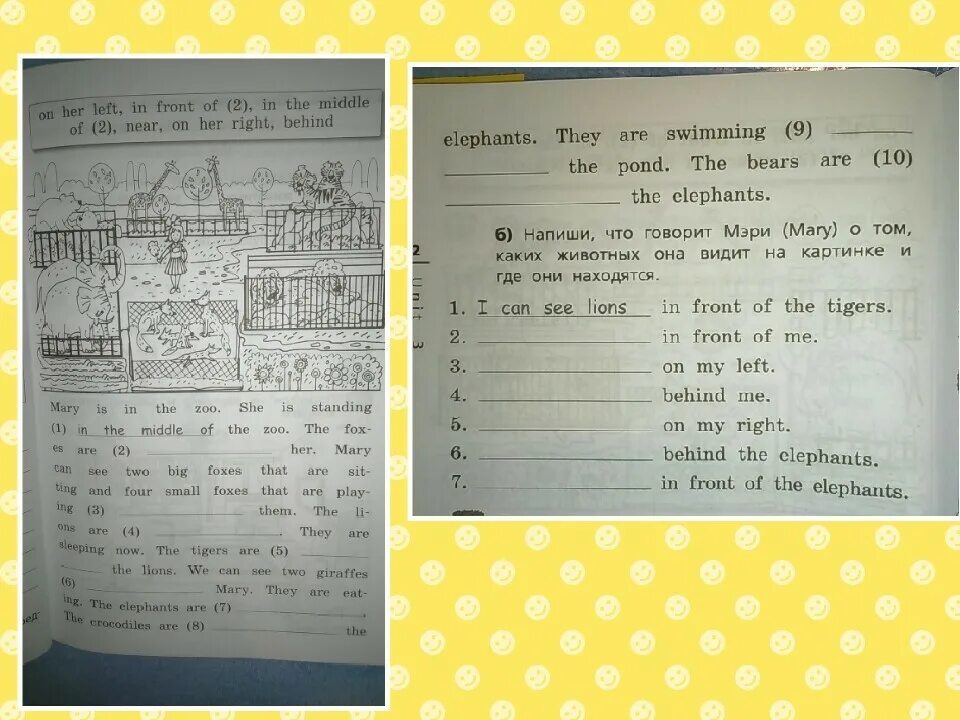 on her left, in front of (2), in the middle
of (2), near, on her right, behind
Mary is in the zoo. She is standing
(1) in the middle of the zoo. The fox-
es are (2) ____________ her. Mary
can see two big foxes that are sit-
ting and four small foxes that are play-
ing (3) ____________ them. The li-
ons are (4) ____________. They are
sleeping now. The tigers are (5) ______
______ the lions. We can see two giraffes
(6) ____________ Mary. They are eat-
ing. The elephants are (7) ____________.
The crocodiles are (8) ____________ the
elephants. They are swimming (9) ______
____________ the pond. The bears are (10)
____________ the elephants.
б) Напиши, что говорит Мэри (Mary) о том,
каких животных она видит на картинке и
где они находятся.
1. I can see lions in front of the tigers.
2. ____________ in front of me.
3. ____________ on my left.
4. ____________ behind me.
5. ____________ on my right.
6. ____________ behind the elephants.
7. ____________ in front of the elephants.
2
Unit 3